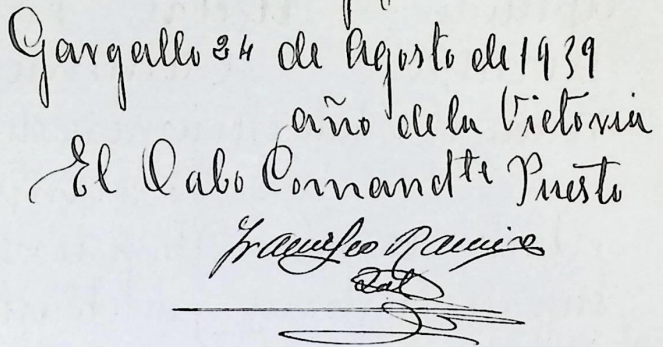 Gargallo 24 de Agosto de 1939
año de la Victoria
El Cabo Comandte Puesto
Francisco Ramirez